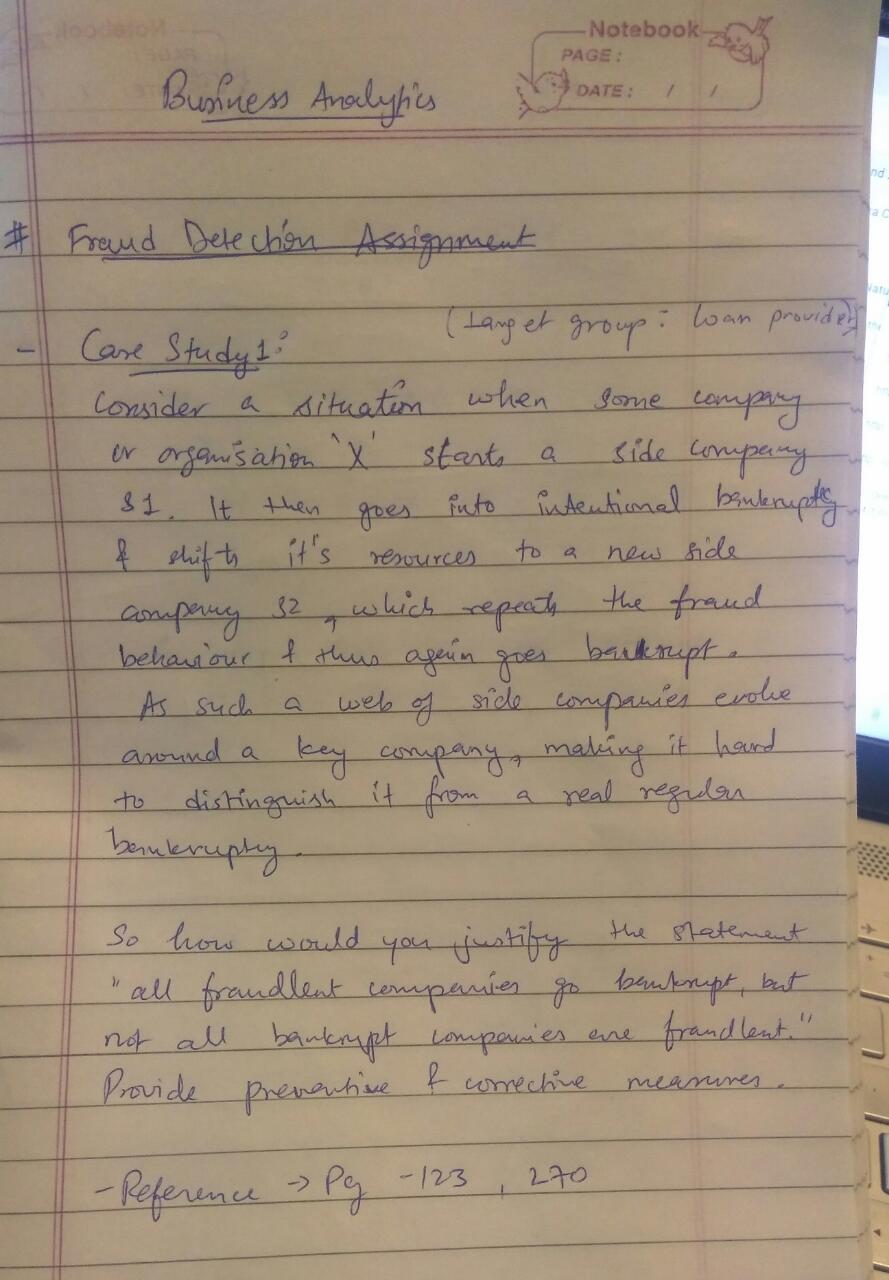 Notebook
PAGE :
DATE : / /
Business Analytics
# Fraud Detection Assignment
(Target group : loan provider)
- Case Study 1 :
Consider a situation when some company
or organisation 'X' starts a side company
S1. It then goes into intentional bankruptcy
& shifts it's resources to a new side
company S2, which repeats the fraud
behaviour & thus again goes bankrupt.
As such a web of side companies evolve
around a key company, making it hard
to distinguish it from a real regular
bankruptcy.
So how would you justify the statement
"all fraudlent companies go bankrupt, but
not all bankrupt companies are fraudlent."
Provide preventive & corrective measures.
- Reference -> Pg - 123 , 270